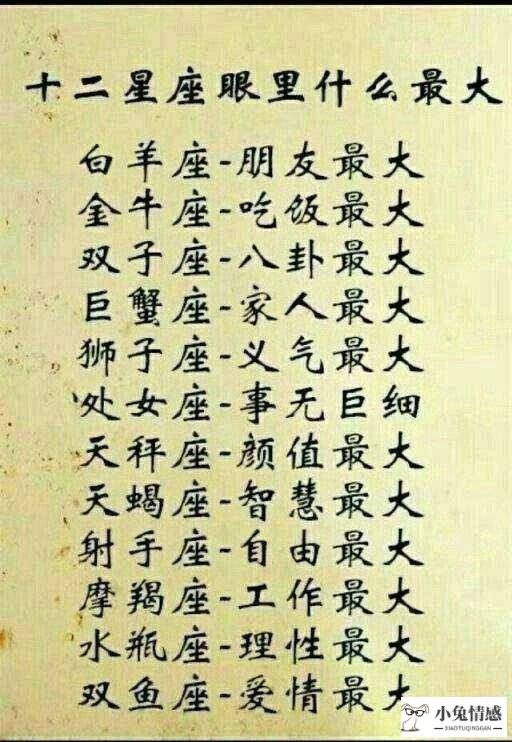 十二星座眼里什么最大
白羊座-朋友最大
金牛座-吃饭最大
双子座-八卦最大
巨蟹座-家人最大
狮子座-义气最大
处女座-事无巨细
天秤座-颜值最大
天蝎座-智慧最大
射手座-自由最大
摩羯座-工作最大
水瓶座-理性最大
双鱼座-爱情最大
小兔情感
XIAOTUQINGGAN